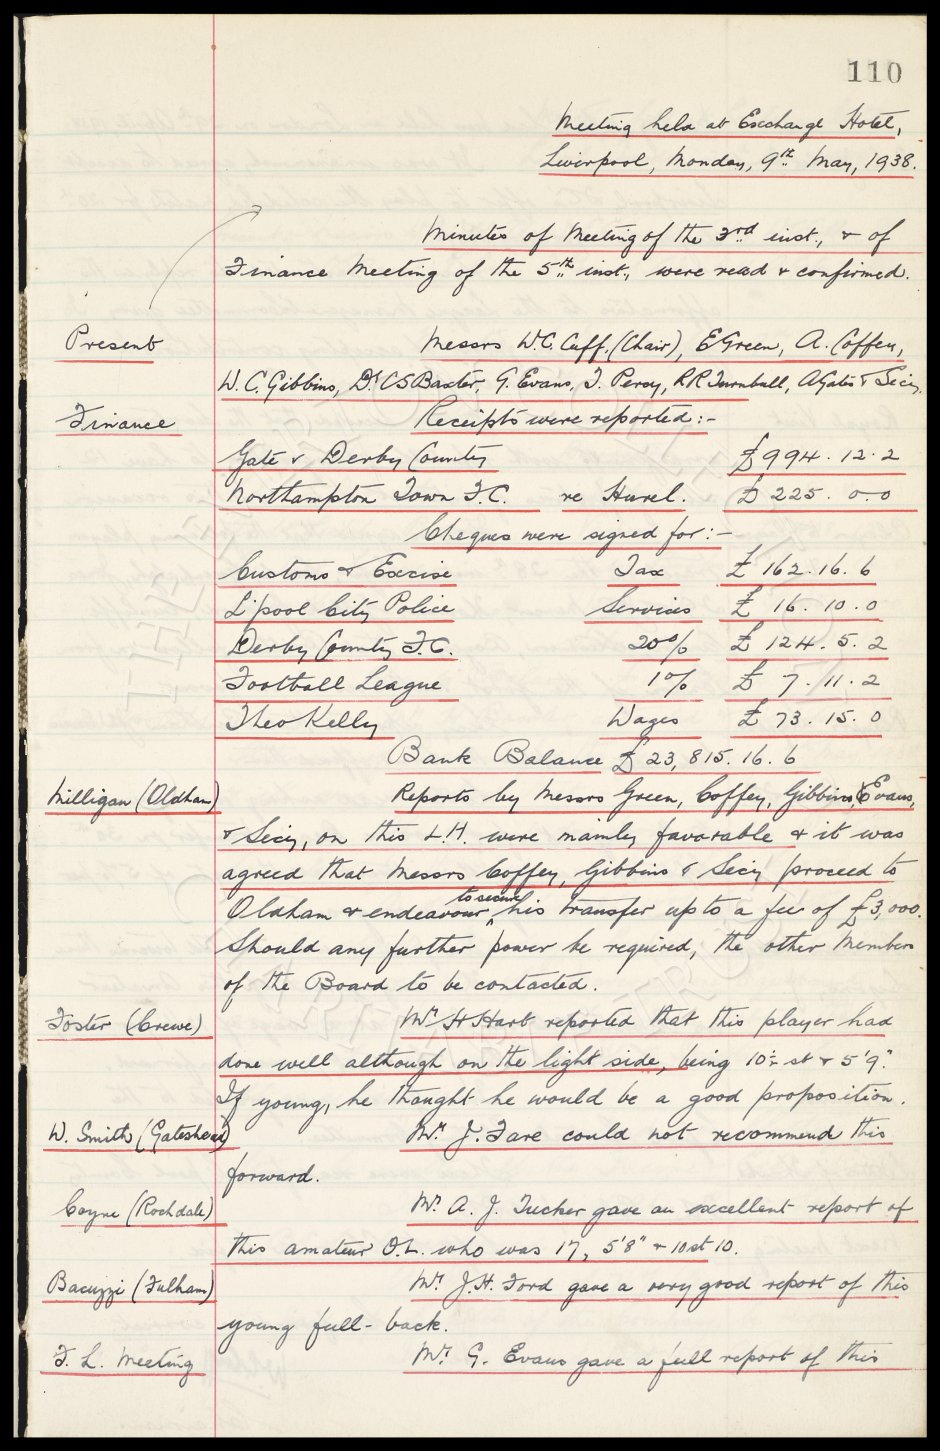 110
Meeting held at Exchange Hotel,
Liverpool, Monday, 9th May, 1938.
Minutes of Meeting of the 3rd inst., & of
Finance Meeting of the 5th inst., were read & confirmed.
Present Messrs W.C. Cuff. (Chair), E Green, A. Coffey,
W.C. Gibbins, Dr CS Baxter, G. Evans, T. Percy, R R Turnbull, A Gates & Secy.
Finance Receipts were reported:-
Gate v Derby County £994.12.2
Northampton Town F.C. re Hurel. £225.0.0
Cheques were signed for:-
Customs & Excise Tax £162.16.6
L'pool City Police Services £16.10.0
Derby County F.C. 20% £124.5.2
Football League 1% £7.11.2
Theo Kelly Wages £73.15.0
Bank Balance £23,815.16.6
Milligan (Oldham) Reports by Messrs Green, Coffey, Gibbins, Evans,
& Secy, on this L.H. were mainly favorable & it was
agreed that Messrs Coffey, Gibbins & Secy proceed to
Oldham & endeavour to secure his transfer up to a fee of £3,000.
Should any further power be required, the other Members
of the Board to be contacted.
Foster (Crewe) Mr H Hart reported that this player had
done well although on the light side, being 10½ st & 5'9".
If young, he thought he would be a good proposition.
W. Smith (Gateshead) Mr J. Fare could not recommend this
forward.
Coyne (Rochdale) Mr A. J. Tucker gave an excellent report of
this amateur O.L. who was 17, 5'8" & 10 st 10.
Bacuzzi (Fulham) Mr J.H. Ford gave a very good report of this
young full-back.
F. L. Meeting Mr G. Evans gave a full report of this